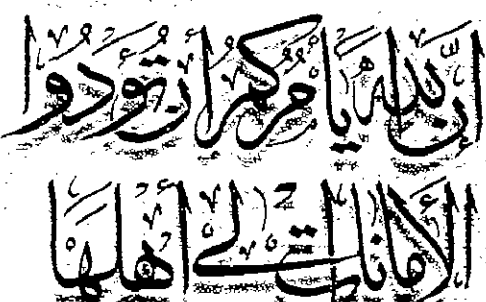 إن الله يأمركم أن تؤدوا
الأمانات إلى أهلها